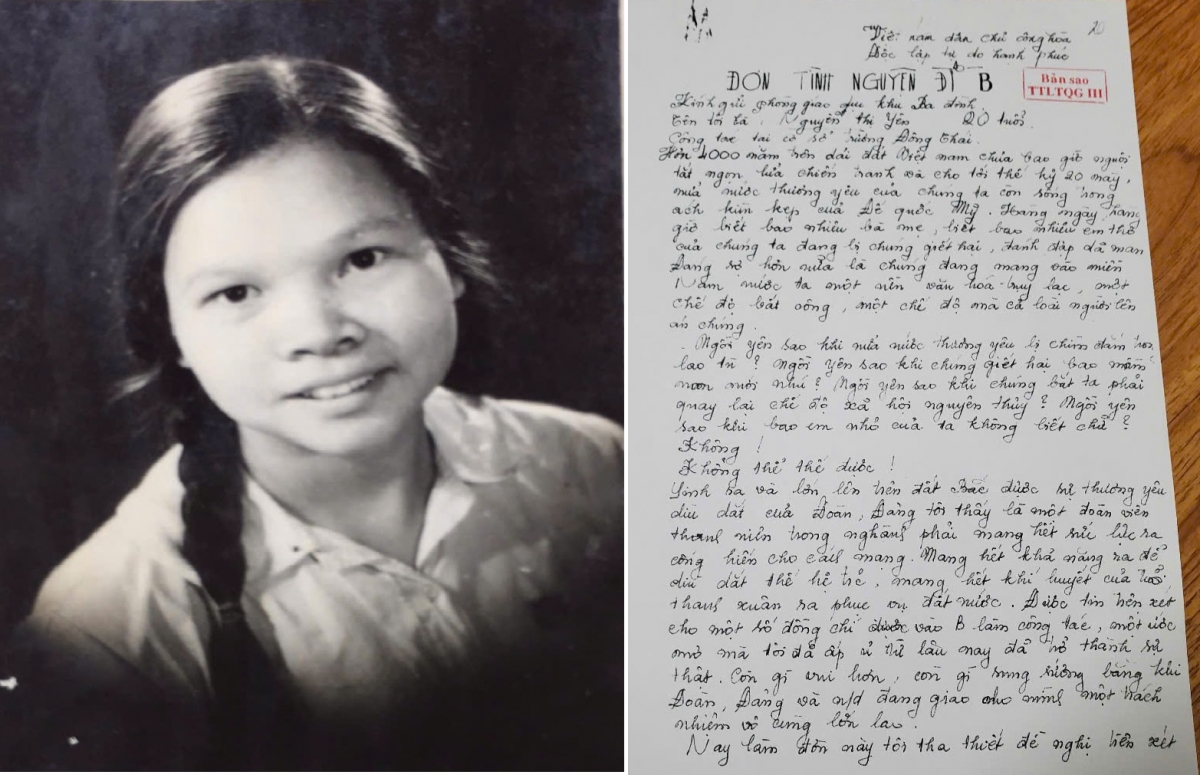 20
Việt nam dân chủ cộng hòa
Độc lập tự do hạnh phúc
ĐƠN TÌNH NGUYỆN ĐI B
Bản sao
TTLTQG III
Kính gửi phòng giáo dục khu Ba đình
Tên tôi là: Nguyễn thị Yên 20 tuổi
Công tác tại cơ sở trường Đông Thái.
Hơn 4000 năm trên dải đất Việt nam chưa bao giờ nguội
tắt ngọn lửa chiến tranh và cho tới thế kỷ 20 này,
nửa nước thương yêu của chúng ta còn sống trong
ách kìm kẹp của Đế quốc Mỹ. Hàng ngày hàng
giờ biết bao nhiêu bà mẹ, biết bao nhiêu em thơ
của chúng ta đang bị chúng giết hại, đánh đập dã man
Đáng sợ hơn nữa là chúng đang mang vào miền
Nam nước ta một nền văn hoá trụy lạc, một
chế độ bất công, một chế độ mà cả loài người lên
án chúng.
Ngồi yên sao khi nửa nước thương yêu bị chìm đắm trong
lao tù? Ngồi yên sao khi chúng giết hại bao mầm
non mới nhú? Ngồi yên sao khi chúng bắt ta phải
quay lại chế độ xã hội nguyên thủy? Ngồi yên
sao khi bao em nhỏ của ta không biết chữ?
Không!
Không thể thế được!
Sinh ra và lớn lên trên đất Bắc được sự thương yêu
dìu dắt của Đoàn, Đảng tôi thấy là một đoàn viên
thanh niên trong ngành phải mang hết sức lực ra
cống hiến cho cách mạng. Mang hết khả năng ra để
dìu dắt thế hệ trẻ, mang hết khí huyết của tuổi
thanh xuân ra phục vụ đất nước. Được tin trên xét
cho một số đồng chí được vào B làm công tác, một ước
mơ mà tôi đã ấp ủ từ lâu nay đã trở thành sự
thật. Còn gì vui hơn, còn gì sung sướng bằng khi
Đoàn, Đảng và n/d đang giao cho mình một trách
nhiệm vô cùng lớn lao.
Nay làm đơn này tôi tha thiết đề nghị trên xét